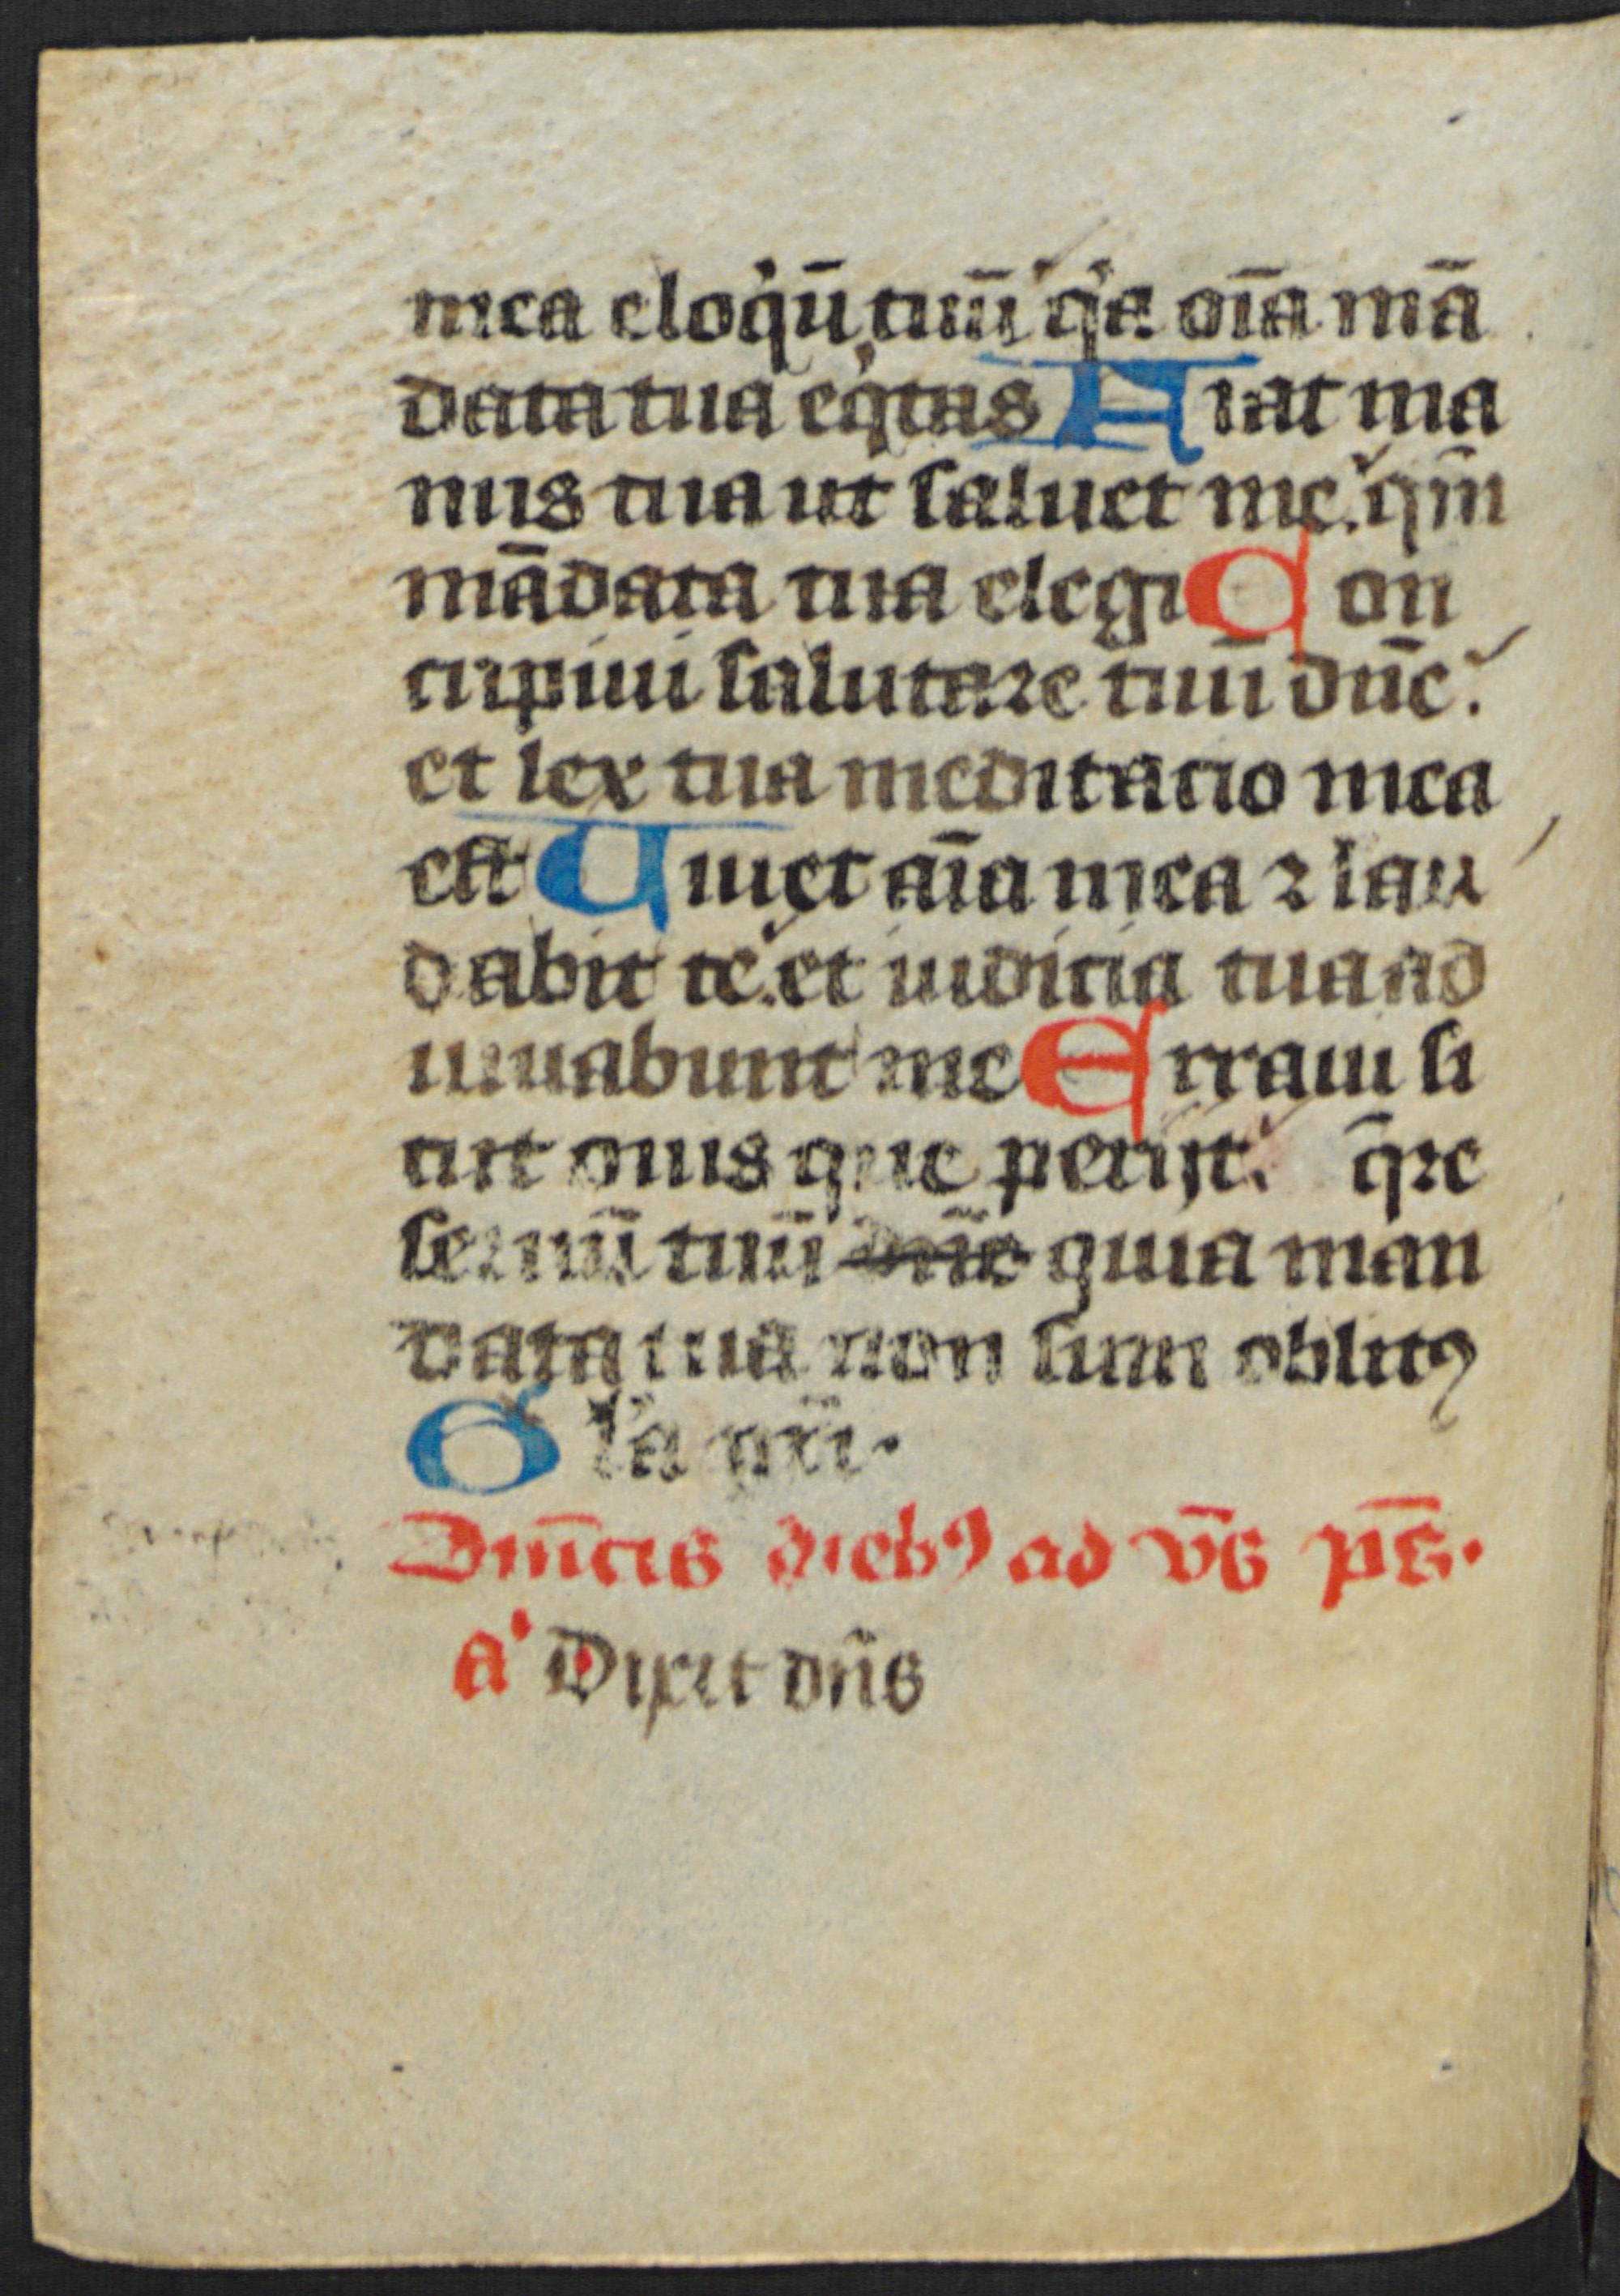 mea eloqͥū tuū qͥa oīa mā
data tua eqͥtas Fiat ma
nus tua ut saluet me. qm̄
mādata tua elegi Con
cupiui salutare tuū dn̄e.
et lex tua meditatio mea
est Uiuet aīa mea ⁊ lau
dabit te. et iudicia tua ad
iuuabunt me Erraui si
cut ouis que perijt. q̄re
seruū tuū dn̄e quia man
data tua non sum oblitꝰ
Gl'a pr̄i.
Dn̄icis diebꝰ ad vs̄ ps̄.
a' Dixit dn̄s